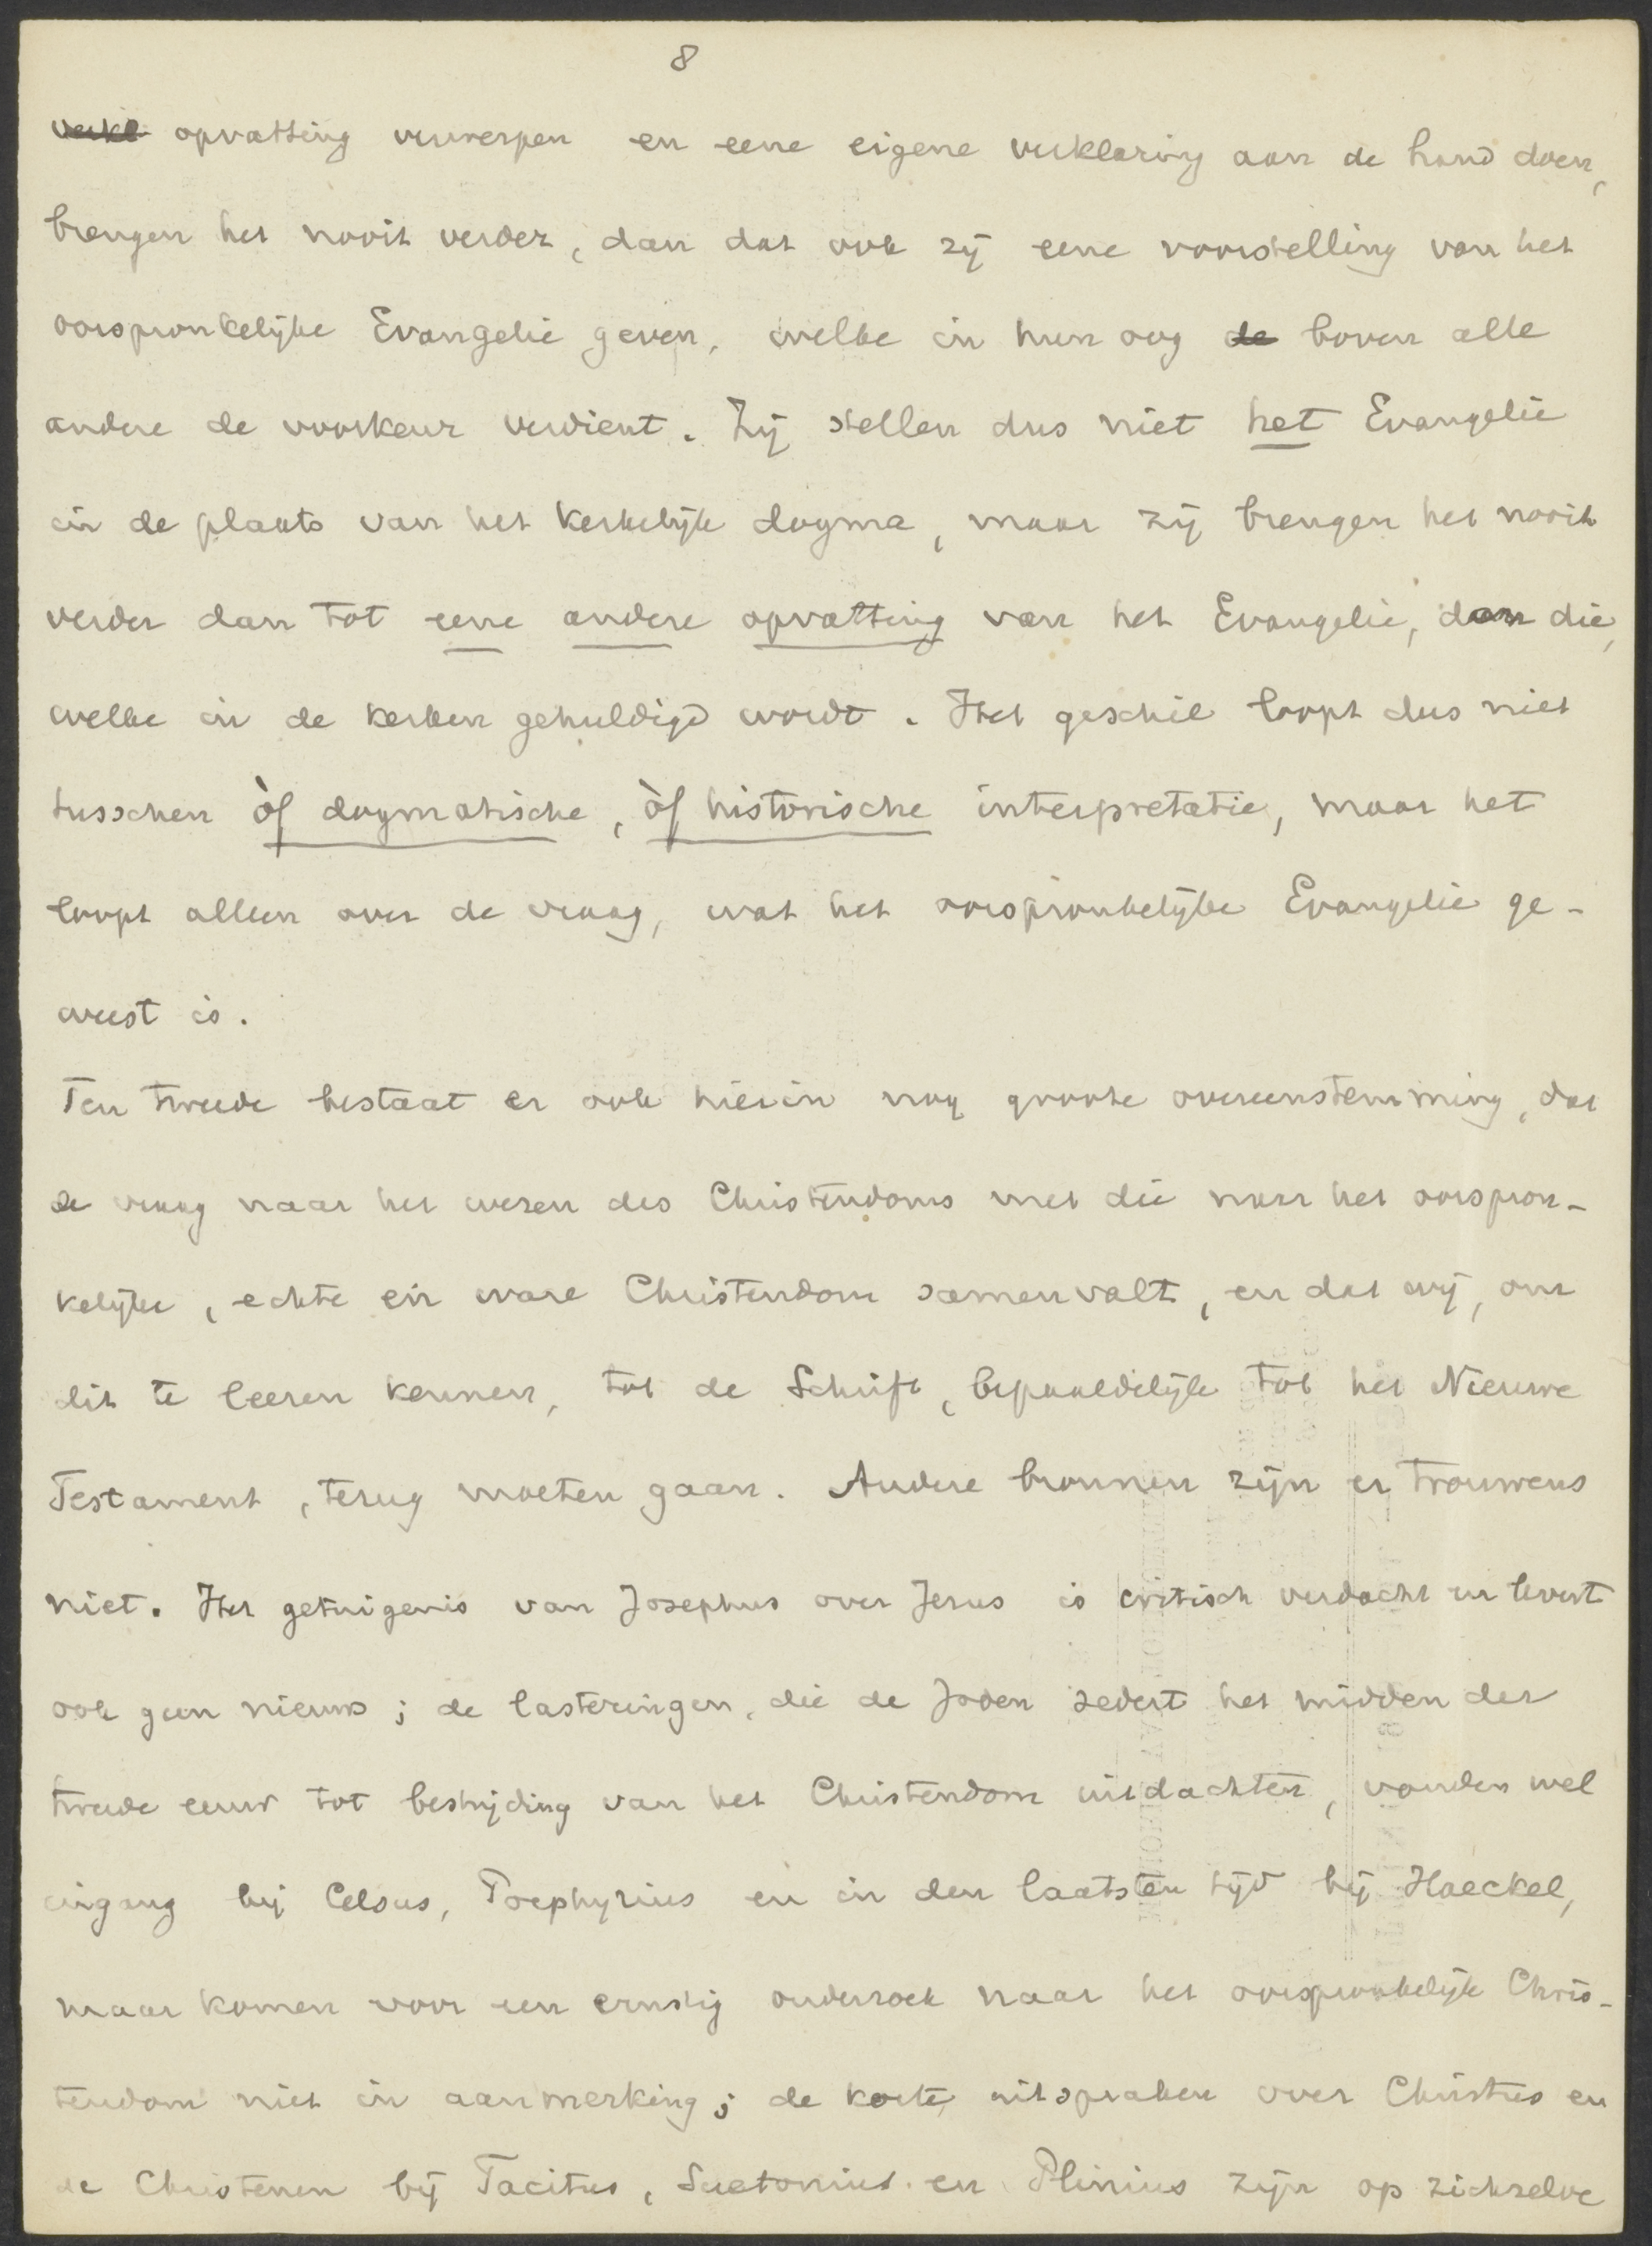 8
verkl opvatting verwerpen en eene eigene verklaring aan de hand doen,
brengen het nooit verder, dan dat ook zij eene voorstelling van het
oorspronkelijke Evangelie geven, welke in hun oog de boven alle
andere de voorkeur verdient. Zij stellen dus niet het Evangelie
in de plaats van het kerkelijk dogma, maar zij brengen het nooit
verder dan tot eene andere opvatting van het Evangelie, dan die,
welke in de kerken gehuldigd wordt. Het geschil loopt dus niet
tusschen òf dogmatische, òf historische interpretatie, maar het
loopt alleen over de vraag, wat het oorspronkelijke Evangelie ge-
weest is.
Ten tweede bestaat er ook hierin nog groote overeenstemming, dat
de vraag naar het wezen des Christendoms met die naar het oorspron-
kelijke, echte en ware Christendom samenvalt, en dat wij, om
dit te leeren kennen, tot de Schrift, bepaaldelijk tot het Nieuwe
Testament, terug moeten gaan. Andere bronnen zijn er trouwens
niet. Het getuigenis van Josephus over Jezus is critisch verdacht en levert
ook geen nieuws; de lasteringen, die de Joden sedert het midden der
tweede eeuw tot bestrijding van het Christendom uitdachten, vonden wel
ingang bij Celsus, Porphyrius en in den laatsten tijd bij Haeckel,
maar komen voor een ernstig onderzoek naar het oorspronkelijk Chris-
tendom niet in aanmerking; de korte uitspraken over Christus en
de Christenen bij Tacitus, Suetonius en Plinius zijn op zichzelve